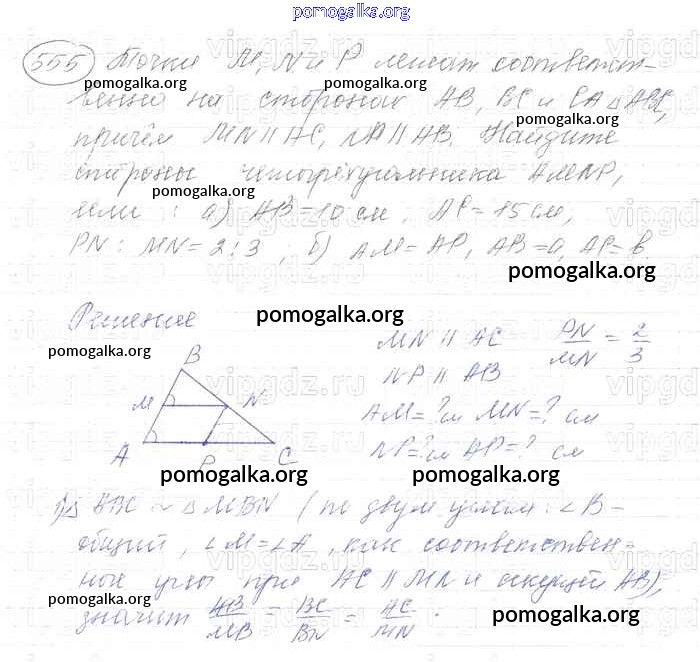 pomogalka.org
555 Точки M, N и P лежат соответст-
pomogalka.org pomogalka.org
венно на сторонах AB, BC и CA △ABC,
pomogalka.org
причём MN || AC, NP || AB. Найдите
стороны четырёхугольника AMNP,
pomogalka.org
если : а) AB = 10 см, AC = 15 см,
PN : MN = 2 : 3 ; б) AM = AP, AB = a, AP = b.
pomogalka.org
Решение
pomogalka.org
pomogalka.org
MN || AC PN/MN = 2/3
NP || AB
AM = ? см MN = ? см
NP = ? см AP = ? см
B
M N
A P C
pomogalka.org pomogalka.org
1) △ ABC ~ △ MBN (по двум углам: ∠B –
общий, ∠M = ∠A, как соответствен-
ные углы при AC || MN и секущей AB),
pomogalka.org
значит AB/MB = BC/BN = AC/MN.
pomogalka.org